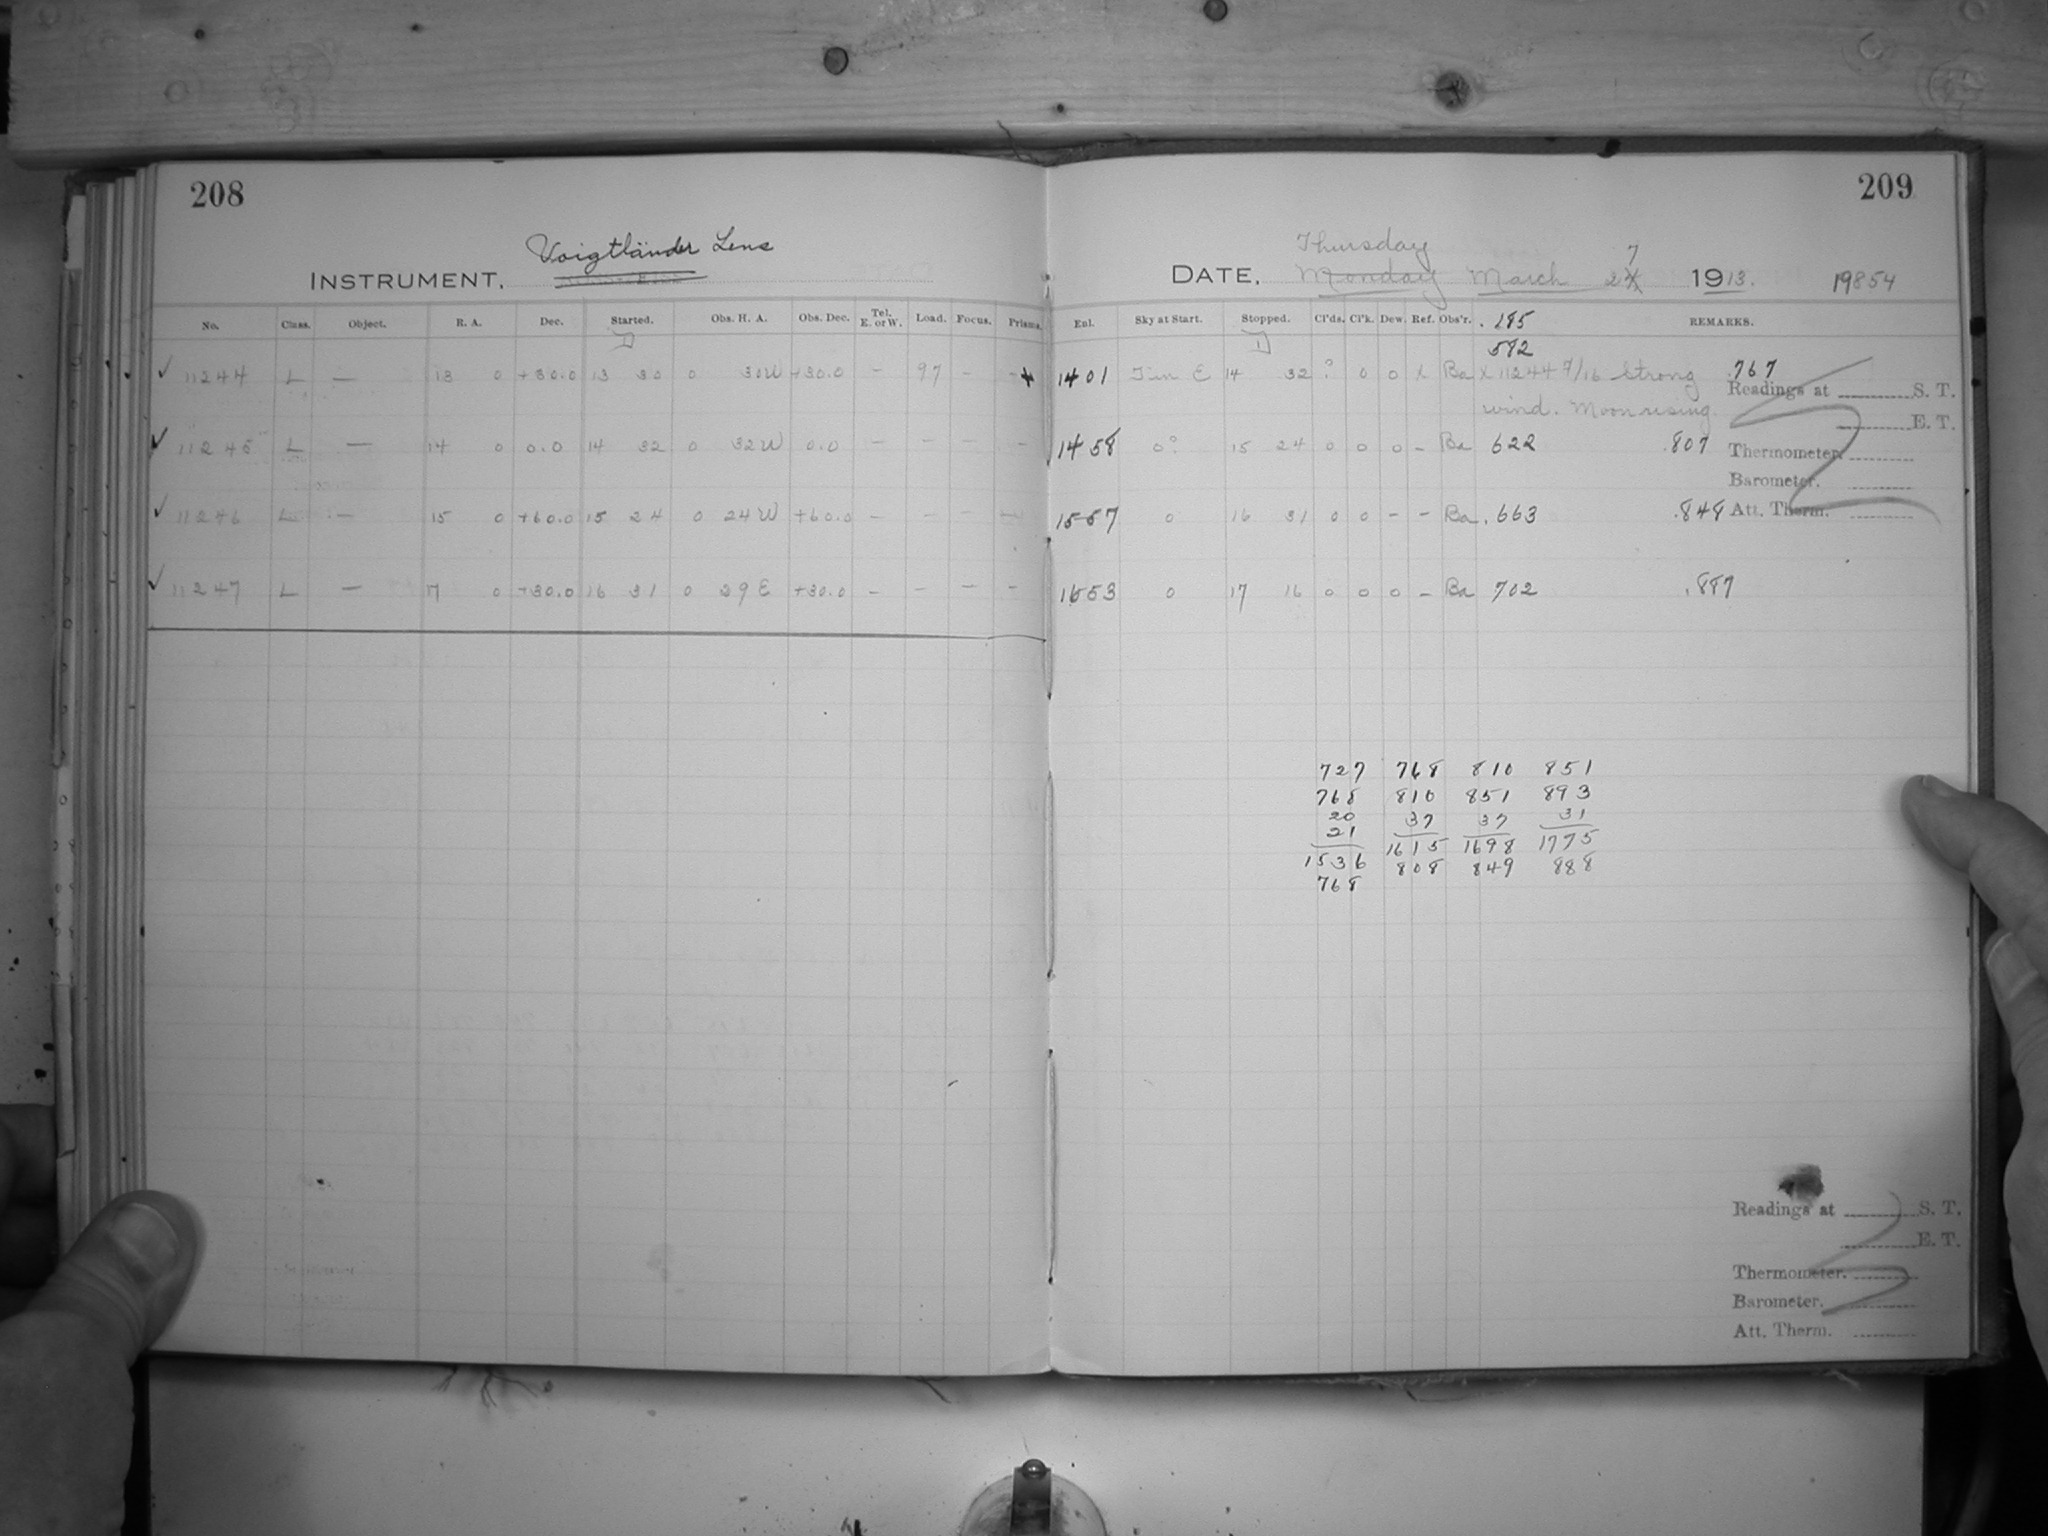 208
Voigtländer Lens
INSTRUMENT.
No. Class. Object. R. A. Dec. Started. Obs. H. A. Obs. Dec. Tel. E. or W. Load. Focus. Prisms.
✓ 11244 L — 13 0 +30.0 13 30 0 30W +30.0 — 97 — —
✓ 11245 L — 14 0 0.0 14 32 0 32W 0.0 — — — —
✓ 11246 L — 15 0 +60.0 15 24 0 24W +60.0 — — — —
✓ 11247 L — 17 0 +30.0 16 31 0 29E +30.0 — — — —
209
Thursday 7
DATE, Monday March 2 1913. 19854
Enl. Sky at Start. Stopped. Cl'ds. Cl'k. Dew. Ref. Obs'r. .185 REMARKS.
582
1401 E 14 32 ? 0 0 x Ba x 11244 7/16 Strong .767
wind. Moon rising.
1458 0? 15 24 0 0 0 - Ba 622 .807
1557 0 16 31 0 0 - - Ba .663 .848
1653 0 17 16 0 0 0 - Ba 702 .887
Readings at S. T.
E. T.
Thermometer.
Barometer.
Att. Therm.
727 768 810 851
768 810 851 893
20 37 37 31
21
1536 1615 1698 1775
768 808 849 888
Readings at S. T.
E. T.
Thermometer.
Barometer.
Att. Therm.